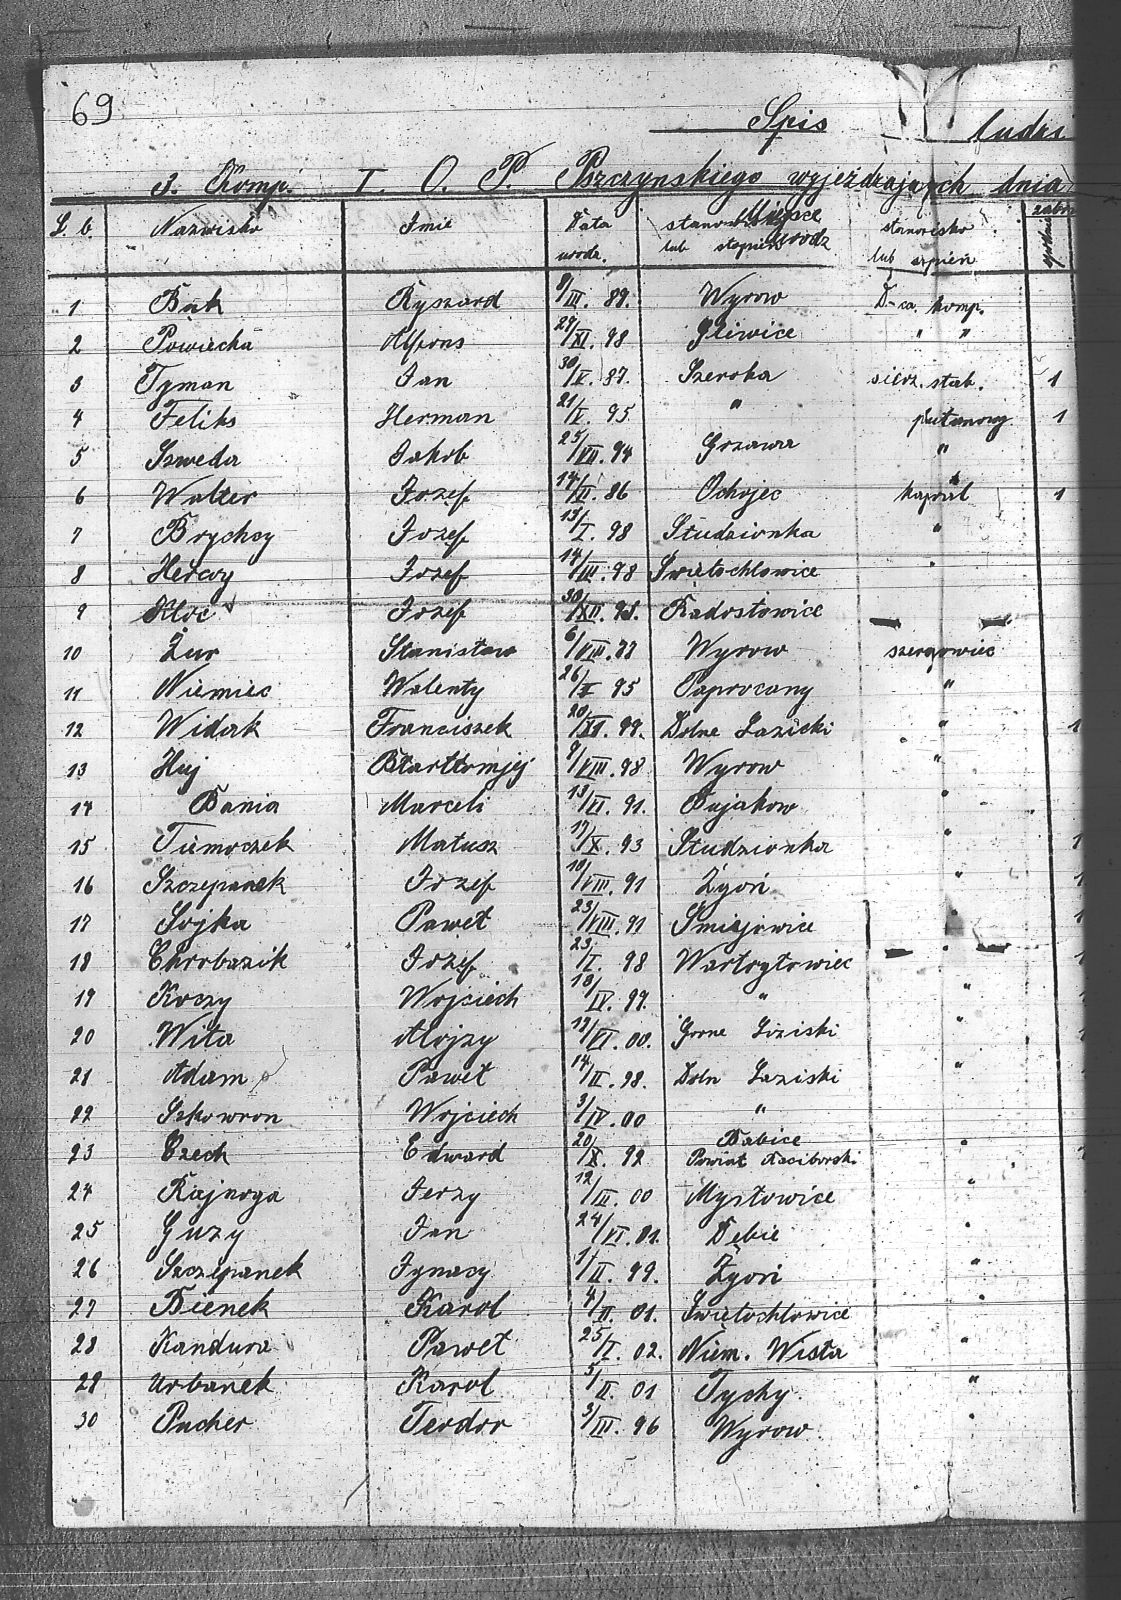 69
Spis ludzi
3. Komp. I. O. P. Pszczynskiego wyjeżdzających dnia
L. b. Nazwisko Imie Data urodz. Miejsce urodz stanowisko lub stopień
1 Bak Ryszard 8/III. 89. Wyrow D-ca. komp.
2 Powiecka Alfons 29/XI. 98 Gliwice " "
3 Tyman Jan 30/V. 87. Szeroka sierż. stab. 1
4 Feliks Herman 21/V. 95 " plutonowy 1
5 Szweda Jakob 25/VII. 94 Grzawa "
6 Walter Jozef 14/II. 86 Ochojec kapral 1
7 Brychcy Jozef 13/I. 98 Studzionka "
8 Hercoy Jozef 14/III. 98 Swiętochlowice "
9 Kloc Jozef 30/XII. 98. Radostowice "
10 Żur Stanisław 6/VIII. 88 Wyrow szeregowiec
11 Niemiec Walenty 26/II 95 Paprocany "
12 Widak Franciszek 20/XI. 99. Dolne Łaziski " 1
13 Huj Bartłomjej 9/VIII. 98 Wyrow "
14 Bania Marceli 13/VI. 91. Bujakow "
15 Tiemoczek Matusz 17/X. 93 Studzionka " 1
16 Szczepanek Jozef 10/VIII. 91 Zgoń " 1
17 Sojka Paweł 23/VIII. 91 Smiejowice 1
18 Chrobazik Jozef 23/I. 98 Wartogłowiec " 1
19 Koczy Wojciech 18/IV. 99. " "
20 Wita Alojzy 19/VI. 00. Gorne Łoziski "
21 Adam Paweł 14/II. 98. Doln Łaziski "
22 Szkowron Wojciech 3/IV. 00 "
23 Czech Edward 20/X. 92 Babice Powiat Raciborski "
24 Rajnoga Jerzy 12/III. 00 Mysłowice "
25 Guzy Jan 24/VI. 01. Dębie "
26 Szczepanek Ignacy 1/II. 99. Zgoń "
27 Bienek Karol 4/II. 01. Swiętochlowice "
28 Kandura Paweł 25/I. 02. Niem. Wisła "
29 Urbanek Karol 5/II. 01 Tychy "
30 Pucher Teodor 3/III. 96 Wyrow "